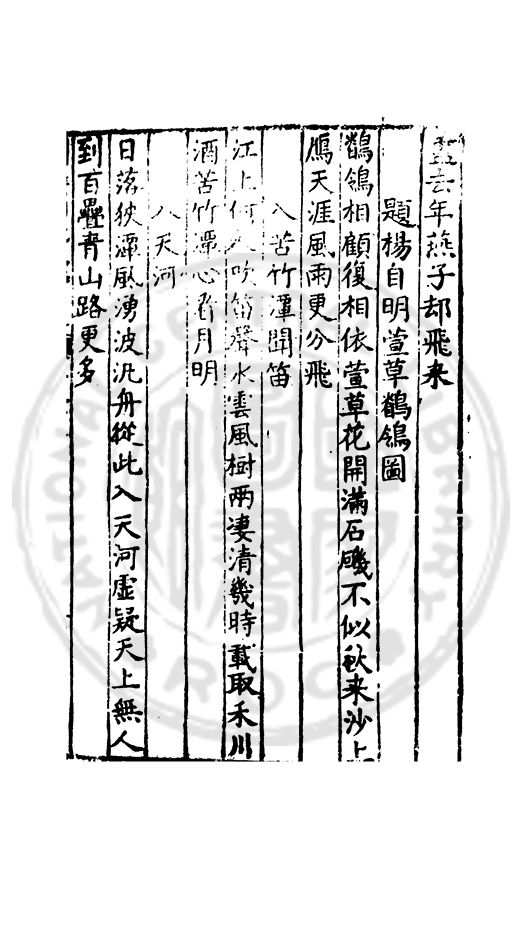 去年燕子却飛来
題楊自明萱草鶺鴒圖
鶺鴒相顧復相依萱草花開滿石磯不似秋来沙上
鴈天涯風雨更分飛
入苦竹潭聞笛
江上何人吹笛聲水雲風樹兩凄清幾時載取禾川
酒苦竹潭心看月明
入天河
日落狹潭風湧波汎舟從此入天河虛疑天上無人
到百疊青山路更多